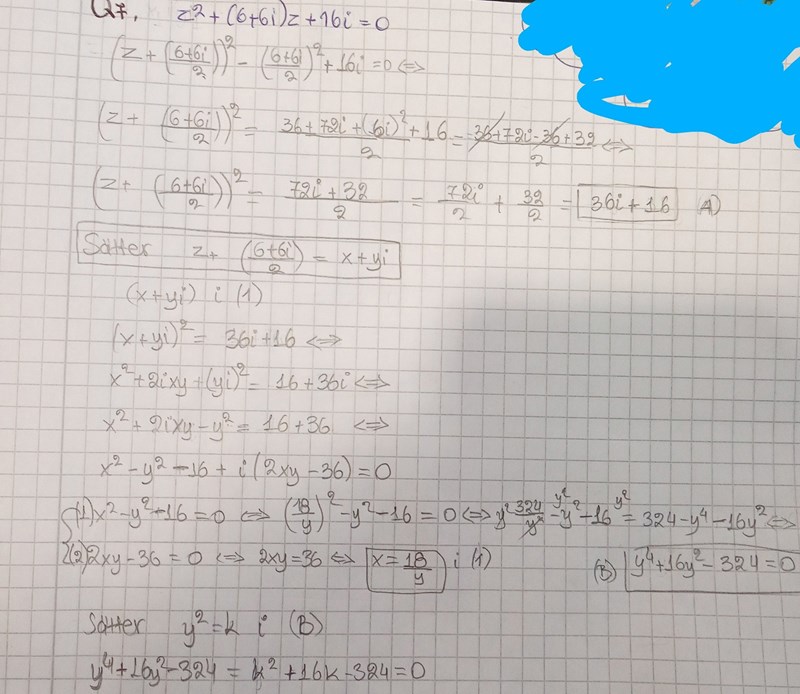 Q7. z² + (6+6i)z + 16i = 0
(z + ((6+6i)/2))² - ((6+6i)/2)² + 16i = 0 ⇔
(z + ((6+6i)/2))² = (36 + 72i + (6i)²)/2 + 16 = (36 + 72i - 36 + 32)/2 ⇔
(z + ((6+6i)/2))² = (72i + 32)/2 = 72i/2 + 32/2 = 36i + 16 A)
Sätter z + ((6+6i)/2) = x + yi
(x + yi) i (1)
(x + yi)² = 36i + 16 ⇔
x² + 2ixy + (yi)² = 16 + 36i ⇔
x² + 2ixy - y² = 16 + 36 ⇔
x² - y² - 16 + i(2xy - 36) = 0
(1) x² - y² - 16 = 0 ⇔ (18/y)² - y² - 16 = 0 ⇔ y² 324/y² - y² y² - 16 y² = 324 - y⁴ - 16y² ⇔
(2) 2xy - 36 = 0 ⇔ 2xy = 36 ⇔ x = 18/y i (1) (B) y⁴ + 16y² - 324 = 0
Sätter y² = k i (B)
y⁴ + 16y² - 324 = k² + 16k - 324 = 0